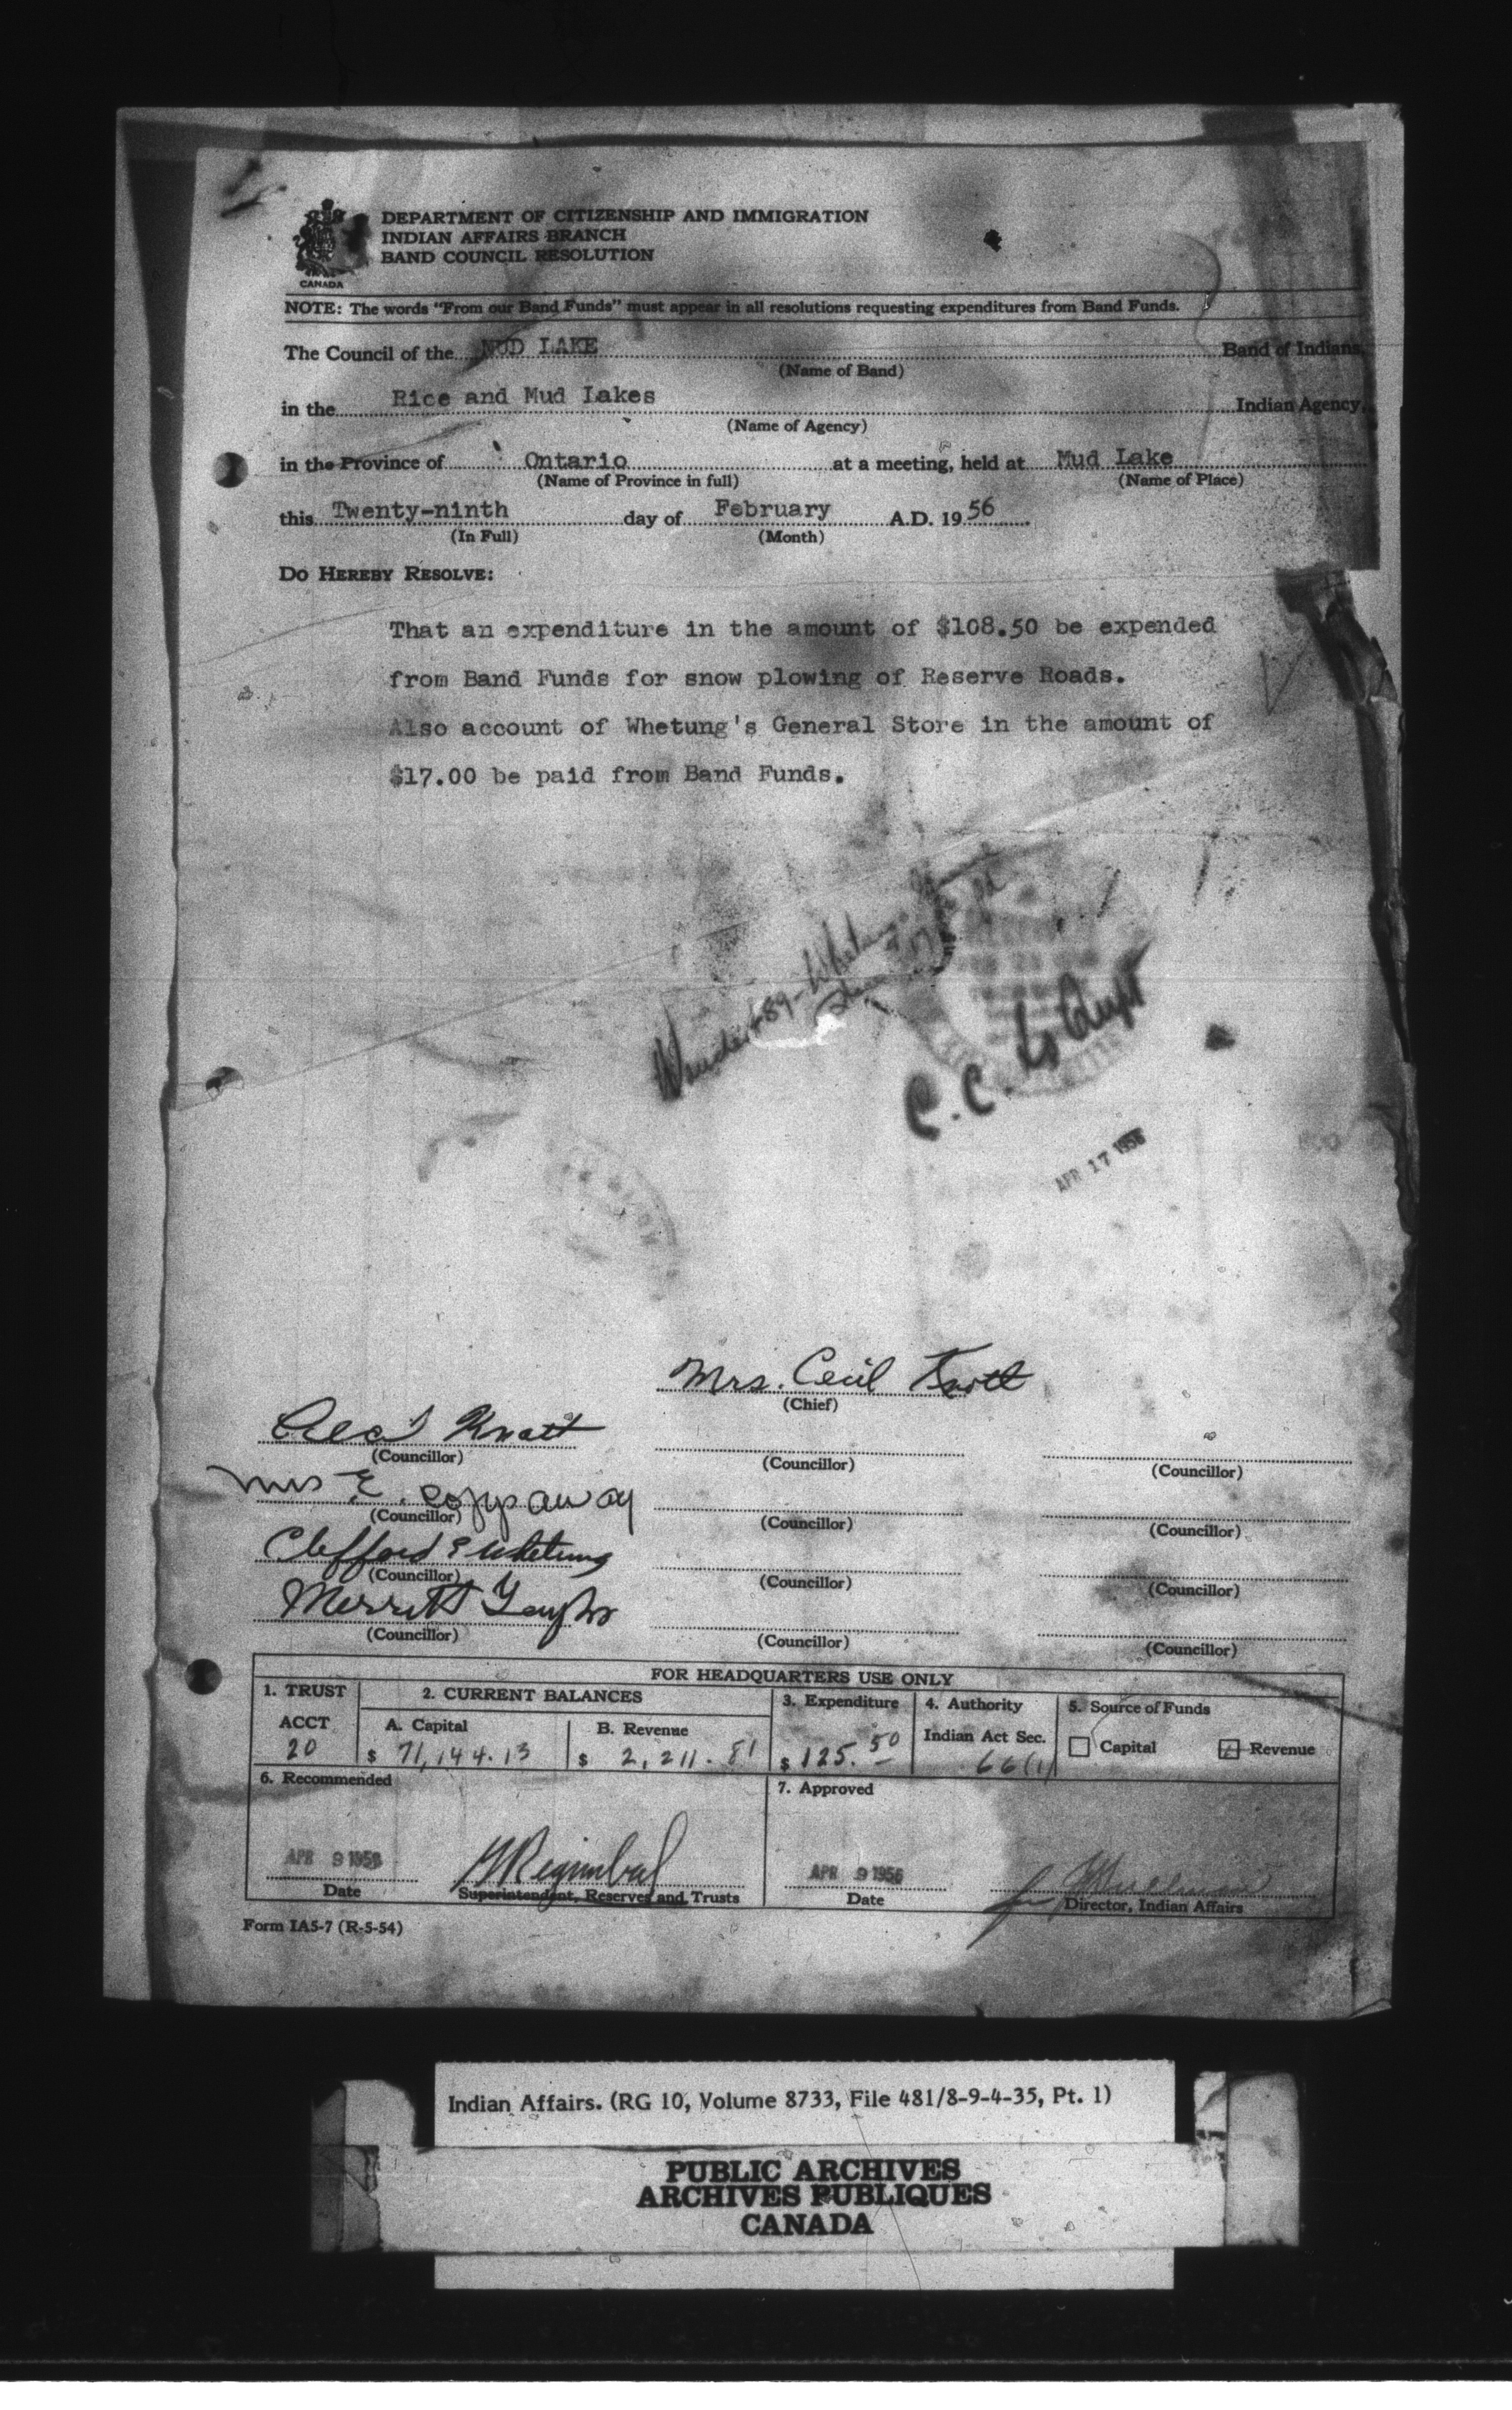 DEPARTMENT OF CITIZENSHIP AND IMMIGRATION
INDIAN AFFAIRS BRANCH
BAND COUNCIL RESOLUTION
CANADA
NOTE: The words "From our Band Funds" must appear in all resolutions requesting expenditures from Band Funds.
The Council of the MUD LAKE Band of Indians,
(Name of Band)
in the Rice and Mud Lakes Indian Agency,
(Name of Agency)
in the Province of Ontario at a meeting, held at Mud Lake
(Name of Province in full) (Name of Place)
this Twenty-ninth day of February A.D. 19 56
(In Full) (Month)
DO HEREBY RESOLVE:
That an expenditure in the amount of $108.50 be expended
from Band Funds for snow plowing of Reserve Roads.
Also account of Whetung's General Store in the amount of
$17.00 be paid from Band Funds.
C.C. to Supt
APR 17 1956
Mrs. Cecil Knott
(Chief)
Cecil Knott
(Councillor) (Councillor) (Councillor)
Mrs E. Coppaway
(Councillor) (Councillor) (Councillor)
Clifford E Whetung
(Councillor) (Councillor) (Councillor)
Merritt Taylor
(Councillor) (Councillor) (Councillor)
FOR HEADQUARTERS USE ONLY
1. TRUST 2. CURRENT BALANCES 3. Expenditure 4. Authority 5. Source of Funds
ACCT A. Capital B. Revenue Indian Act Sec. Capital Revenue
20 $ 71,144.13 $ 2,211.81 $ 125.50 66(1)
6. Recommended 7. Approved
APR 9 1956 APR 9 1956
Date Superintendent, Reserves and Trusts Date Director, Indian Affairs
Form IA5-7 (R-5-54)
Indian Affairs. (RG 10, Volume 8733, File 481/8-9-4-35, Pt. 1)
PUBLIC ARCHIVES
ARCHIVES PUBLIQUES
CANADA